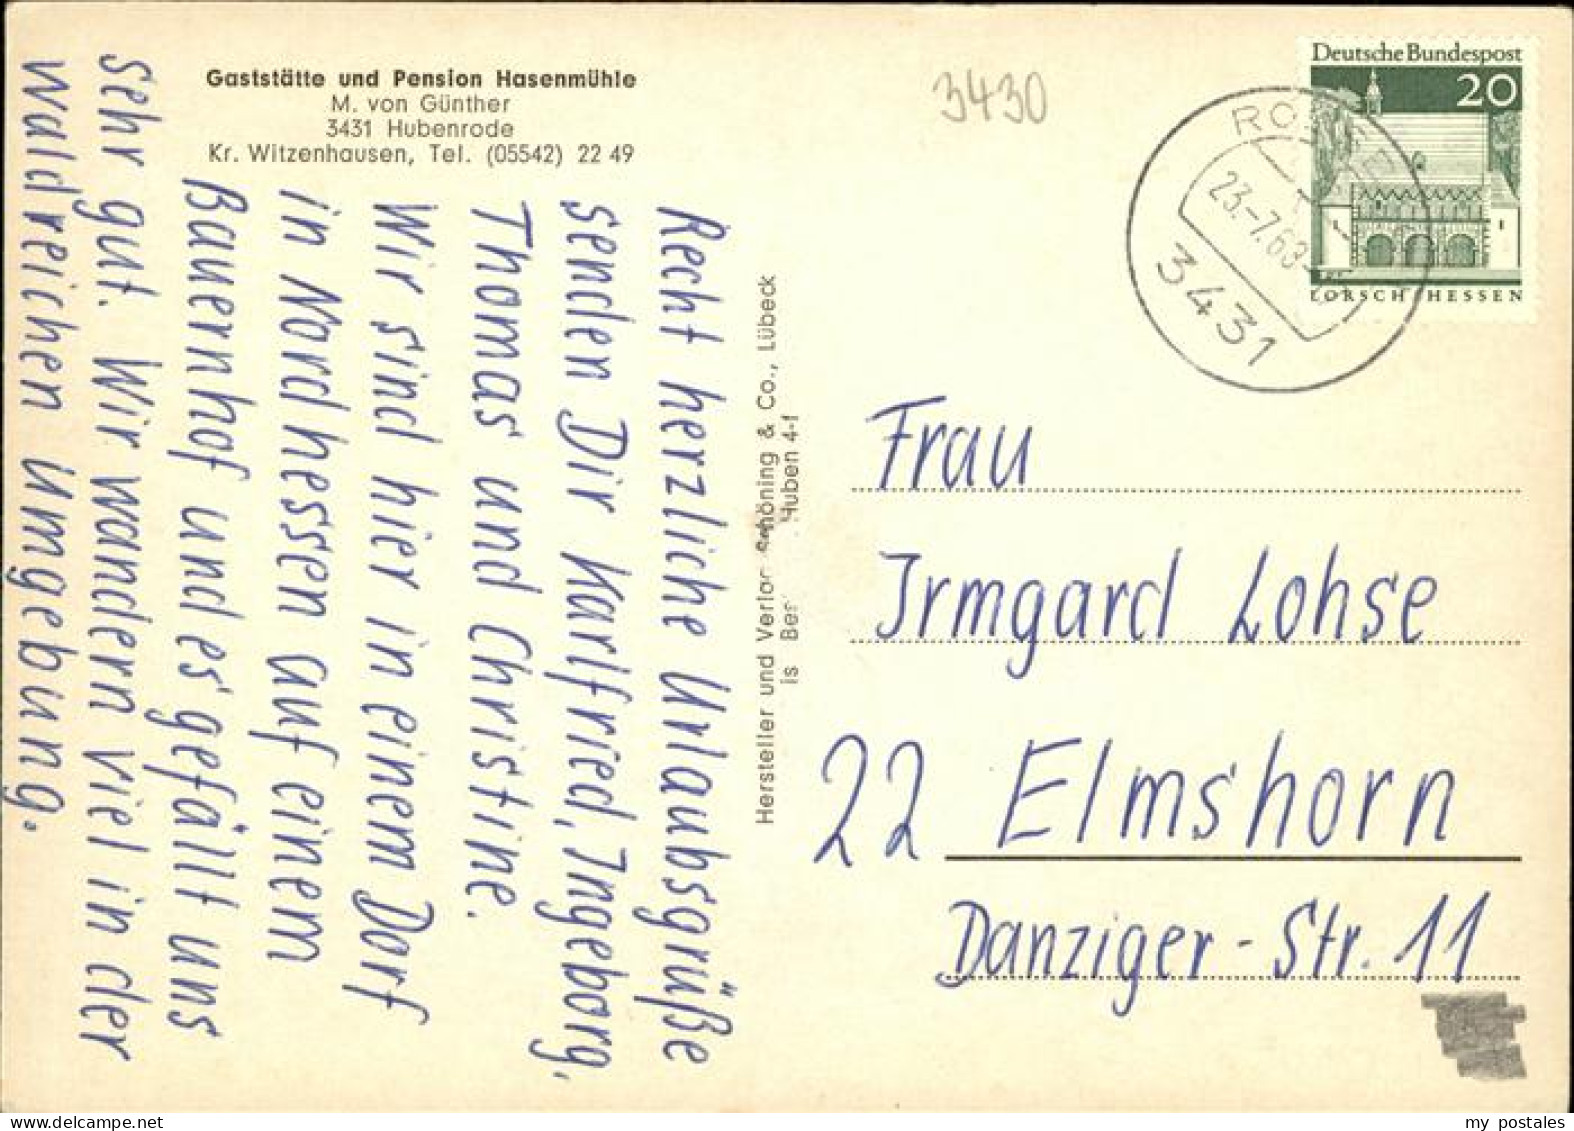 Gaststätte und Pension Hasenmühle
M. von Günther
3431 Hubenrode
Kr. Witzenhausen, Tel. (05542) 22 49
3430
Deutsche Bundespost
20
LORSCH/HESSEN
23.-7.68
3431
Recht herzliche Urlaubsgrüße
senden Dir Karlfried, Ingeborg,
Thomas und Christine.
Wir sind hier in einem Dorf
in Nordhessen auf einem
Bauernhof und es gefällt uns
sehr gut. Wir wandern viel in der
waldreichen Umgebung.
Hersteller und Schöning & Co., Lübeck
Huben 4-1
Frau
Irmgard Lohse
22 Elmshorn
Danziger-Str. 11
my postales